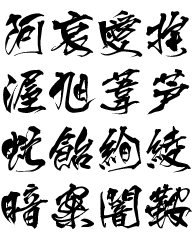 阿哀曖挨
渥旭葦芦
虻飴絢綾
暗案闇鞍